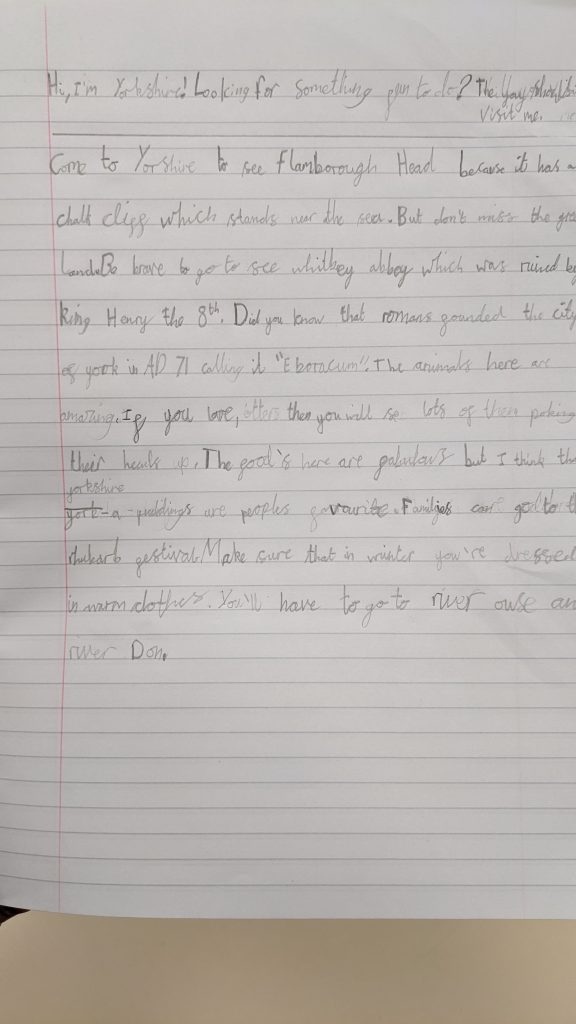 Hi, I'm Yorkshire! Looking for something fun to do? The
visit me.
Come to Yorshire to see flamborough Head because it has a
chalk cliff which stands near the sea. But don't miss the
Land. Be brave to go to see whitbey abbey which was ruined
king Henry the 8th. Did you know that romans founded the city
of york in AD 71 calling it "Eboracum". The animals here are
amazing. If you love, otters then you will se lots of them poking
their heads up. The food's here are fabulous but I think
yorkshire
puddings are peoples favourite. Families can go to
rhubarb festival. Make sure that in winter you're dressed
in warm clothes. You'll have to go to river ouse
river Don.